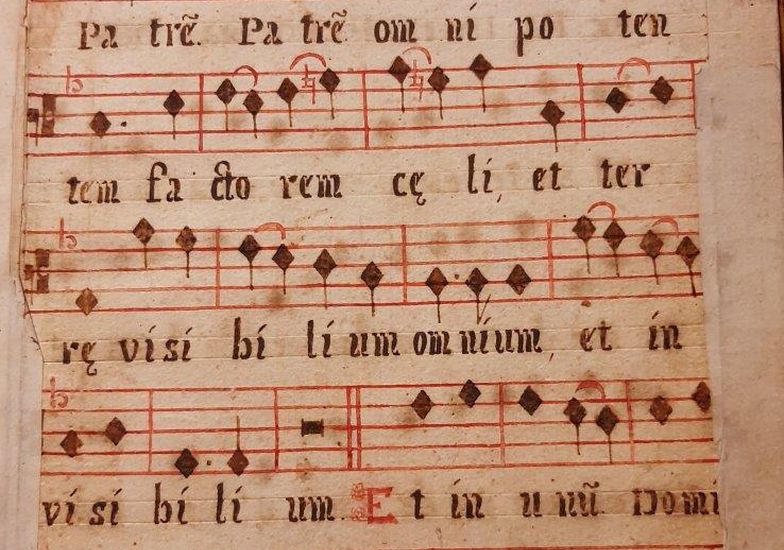 Pa trẽ. Pa trẽ om ni po ten
tem fa cto rem cę li, et ter
rę visi bi li um omnium, et in
visi bi li um. Et in u nũ Domi